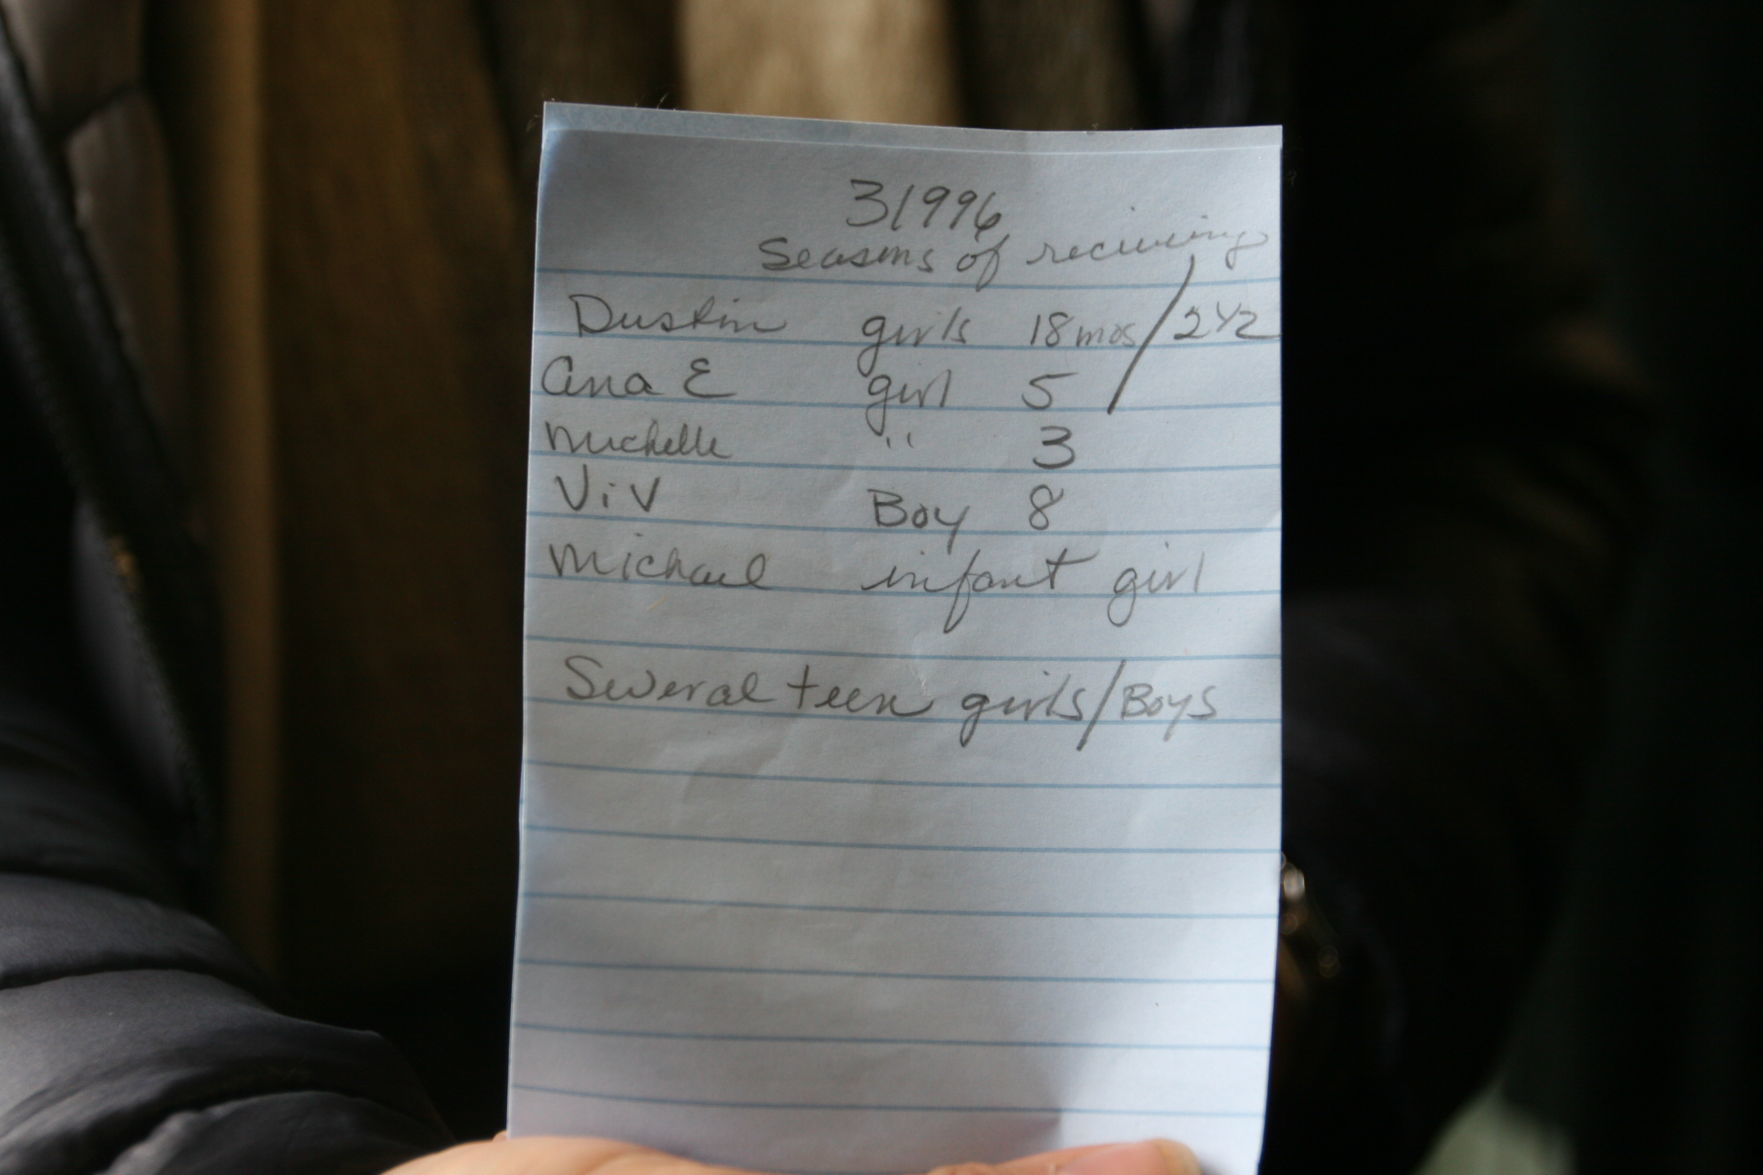 31996
Seasons of reciving
Dustin girls 18 mos / 2 1/2
Ana E girl 5
Michelle " 3
ViV Boy 8
Michael infant girl
Several teen girls/Boys